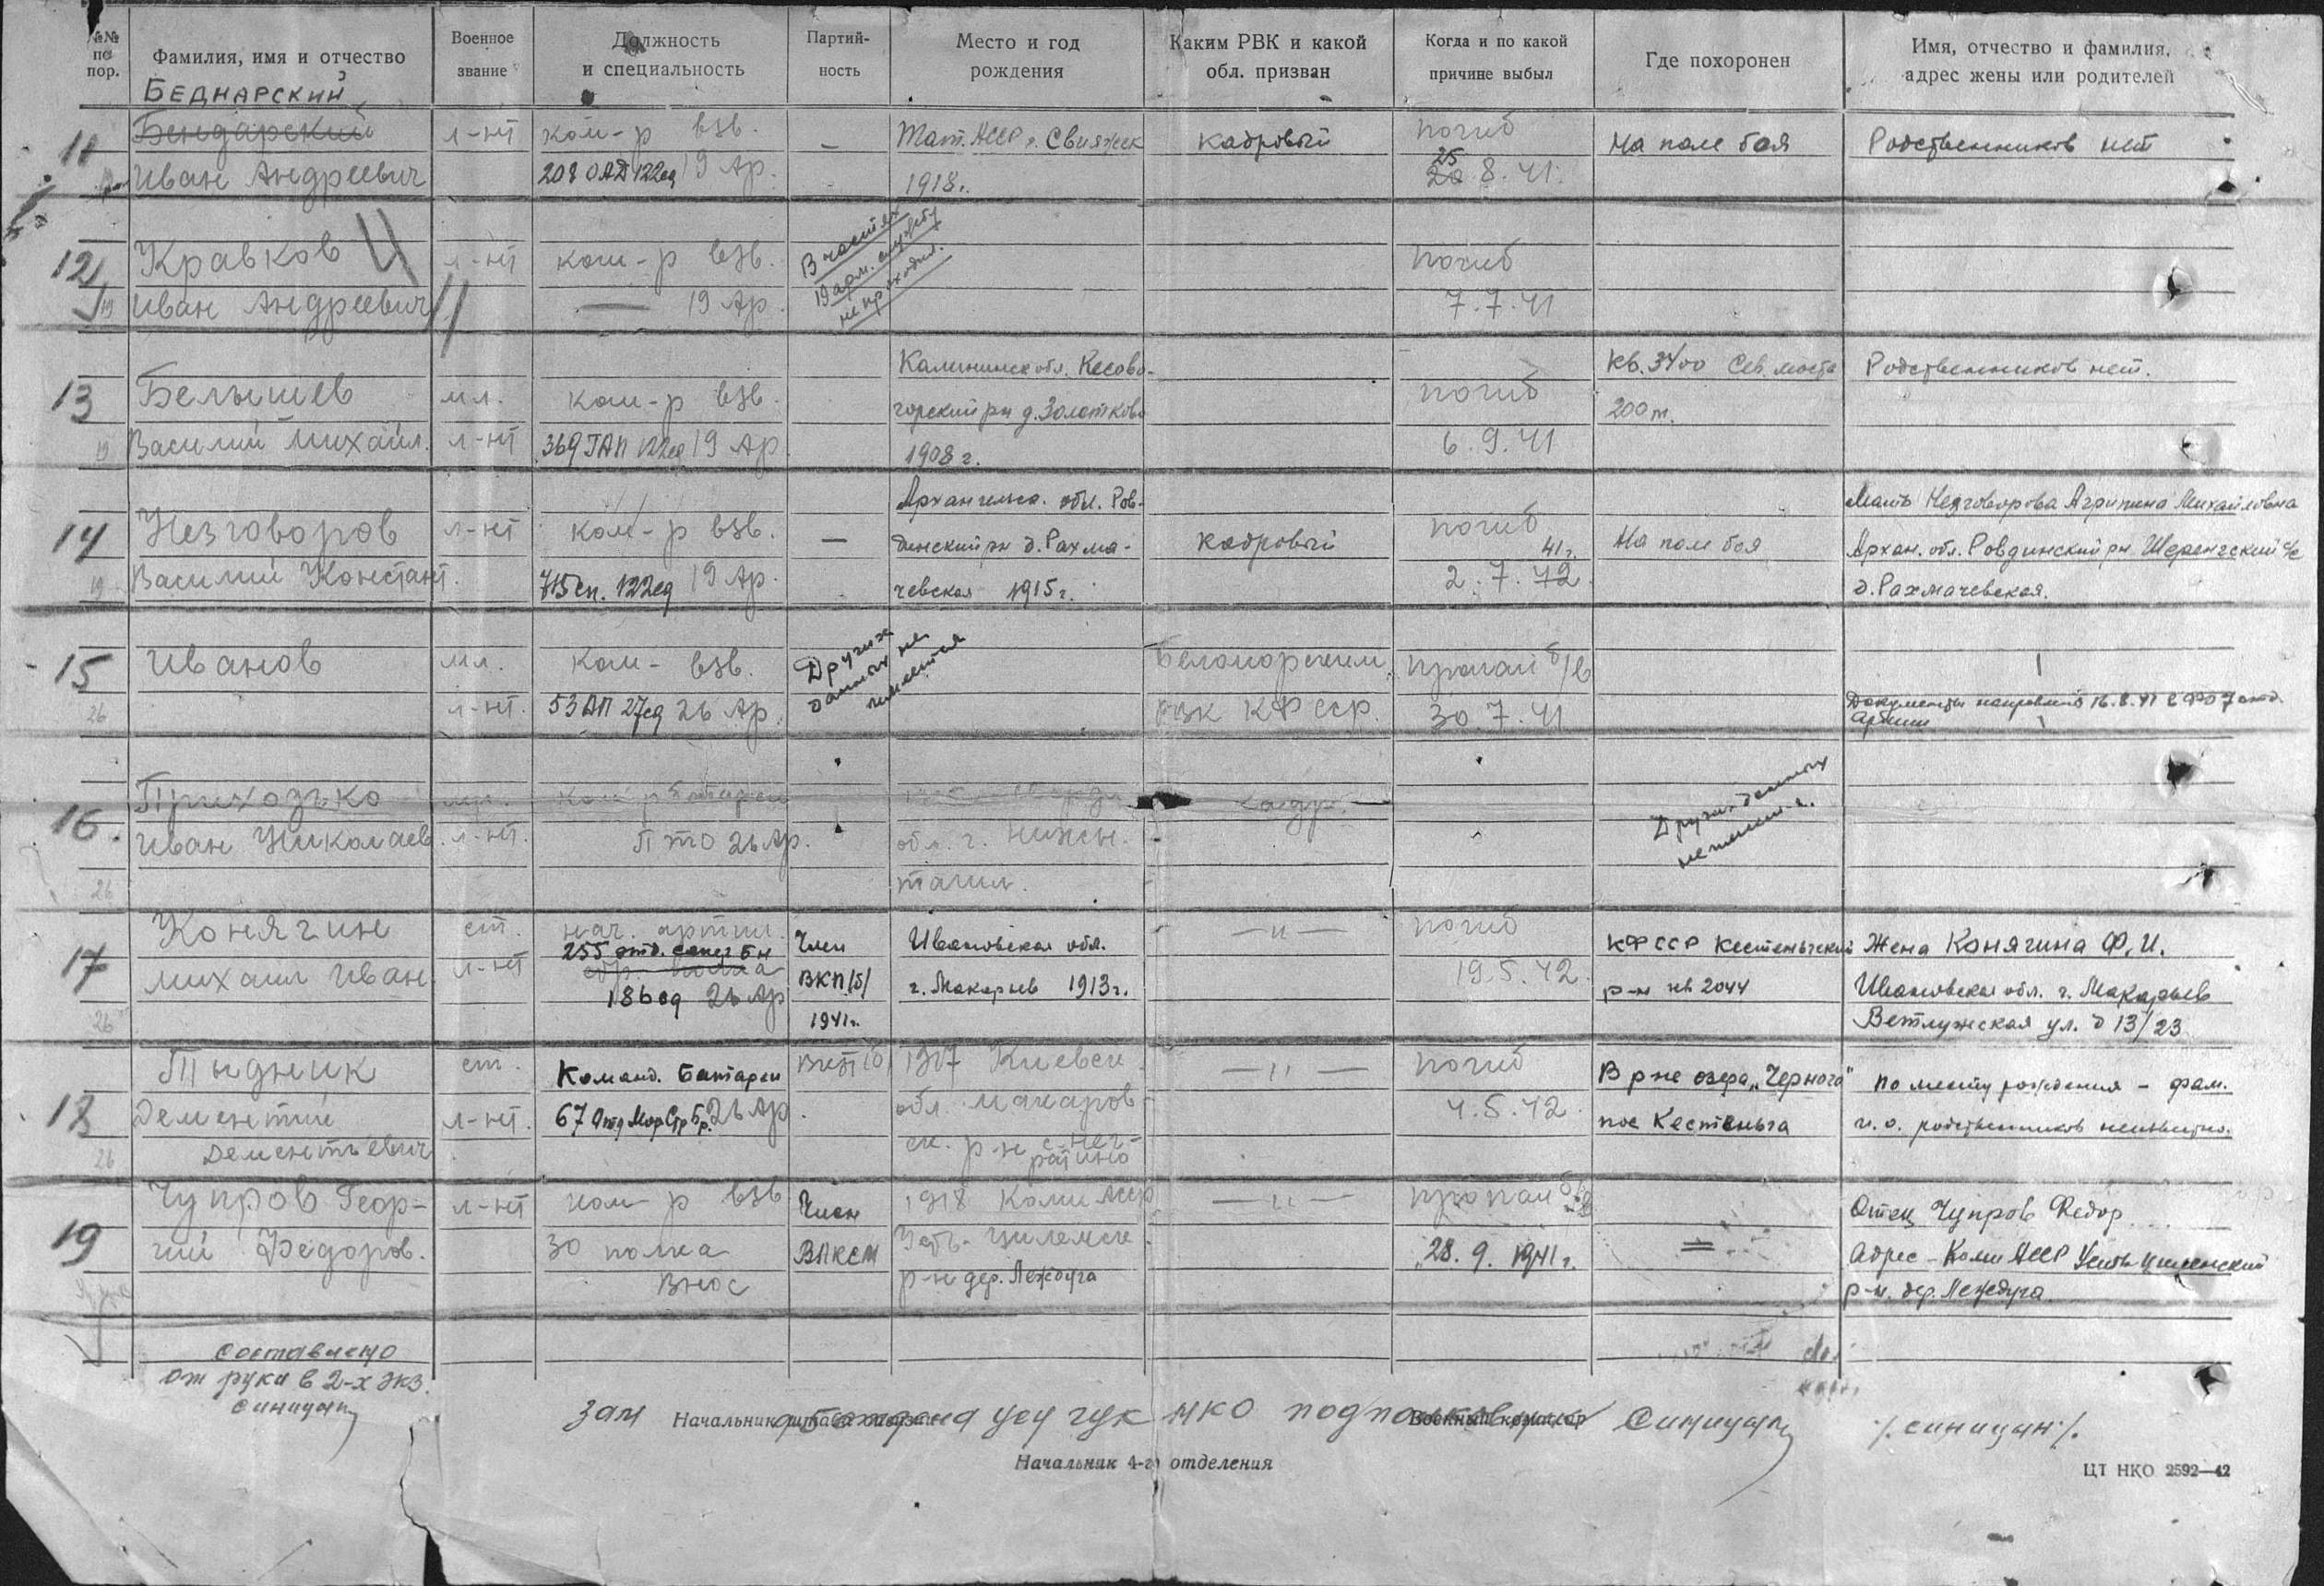 №№ по пор.
Фамилия, имя и отчество
Военное звание
Должность и специальность
Партий-ность
Место и год рождения
Каким РВК и какой обл. призван
Когда и по какой причине выбыл
Где похоронен
Имя, отчество и фамилия, адрес жены или родителей
11
БЕДНАРСКИЙ
Бендарский
Иван Андреевич
л-нт
ком-р взв.
208 ОАД 122сд 19 Ар.
—
Тат. АССР г. Свияжск
1918г.
кадровый
погиб
25
20.8.41.
На поле боя
Родственников нет
12
19
Кравков
Иван Андреевич
л-нт
ком-р взв.
— 19 Ар.
В частях
19 арм. службу
не проходил.
погиб
7.7.41
13
19
Белышев
Василий Михайл.
мл.
л-нт
ком-р взв.
369 ГАП 122сд 19 Ар
Калининск обл. Кесово-
горский рн д. Золотково
1908 г.
погиб
6.9.41
кв. 3400 Сев. моста
200 м.
Родственников нет.
14
19
Незговоров
Василий Констант.
л-нт
ком-р взв.
715 сп. 122сд 19 Ар.
—
Архангельс. обл. Ров-
динский рн д. Рахма-
чевская 1915г.
кадровый
погиб
41г.
2.7.42
На поле боя
Мать Незговорова Агрипина Михайловна
Архан. обл. Ровдинский рн Шеренгский с/с
д. Рахмачевская.
15
26
Иванов
мл.
л-нт.
ком- взв.
53 АП 27сд 26 Ар.
Других
данных не
имеется
Беломорским
РВК КФССР.
пропал б/в
30.7.41
Документы направлены 16.8.41 в ФО 7 отд.
армии
16.
26
Приходько
Иван Николаев.
мл.
л-нт.
ком-р батареи
ПТО 26 Ар.
обл. г. Нижн.
тагил.
кадр.
Других данных
не имеется.
17
26
Конягин
Михаил Иван.
ст.
л-нт
нач. артил.
255 отд. сапер Бн
стр. полка
186 сд 26 Ар
Член
ВКП/б/
1941г.
Ивановская обл.
г. Макарьев 1913г.
—"—
погиб
19.5.42.
КФССР Кестеньгский
р-н кв 2044
Жена Конягина Ф. И.
Ивановская обл. г. Макарьев
Ветлужская ул. д 13/23
18
26
Тыдник
Дементий
Дементьевич
ст.
л-нт.
Команд. Батареи
67 Отд Мор Стр Бр. 26 Ар.
ВКП(б)
1917 Киевск.
обл. Макаров-
ск. р-н
—"—
погиб
4.5.42.
В р-не озера „Черного"
пос Кестеньга
по месту рождения – фам.
и. о. родственников неизвестно.
19
Чупров Геор-
гий Федоров.
л-нт
ком-р взв
30 полка
ВНОС
Член
ВЛКСМ
1918 Коми АССР
Усть-Цилемск.
р-н дер. Лежбуга
—"—
пропал б/в
28.9.1941г.
=
Отец Чупров Федор
Адрес – Коми АССР Усть-Цилемский
р-н. дер. Лежбуга
Составлено
от руки в 2-х экз.
Синицын
зам Начальник УСУ ГУК НКО подполковник Синицын /Синицын/.
Военный комиссар
Начальник 4-го отделения
ЦТ НКО 2592—42